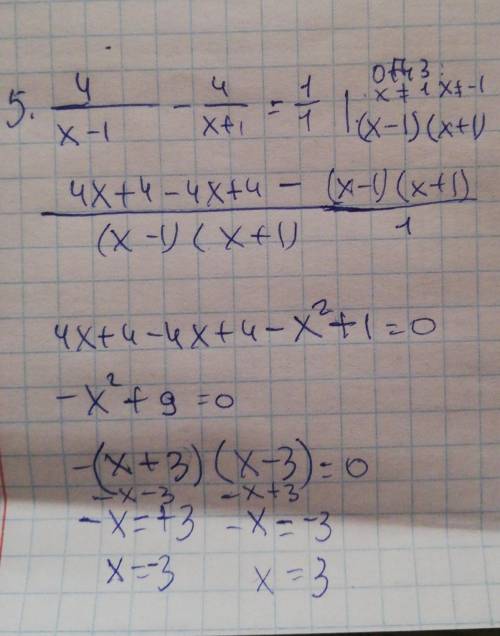 5. 4/(x-1) - 4/(x+1) = 1/1 | x≠1 x≠-1
·(x-1)(x+1)
4x+4-4x+4 - (x-1)(x+1)
(x-1)(x+1) 1
4x+4-4x+4-x²+1=0
-x²+9=0
-(x+3)(x-3)=0
-x-3 -x+3
-x=+3 -x=-3
x=-3 x=3